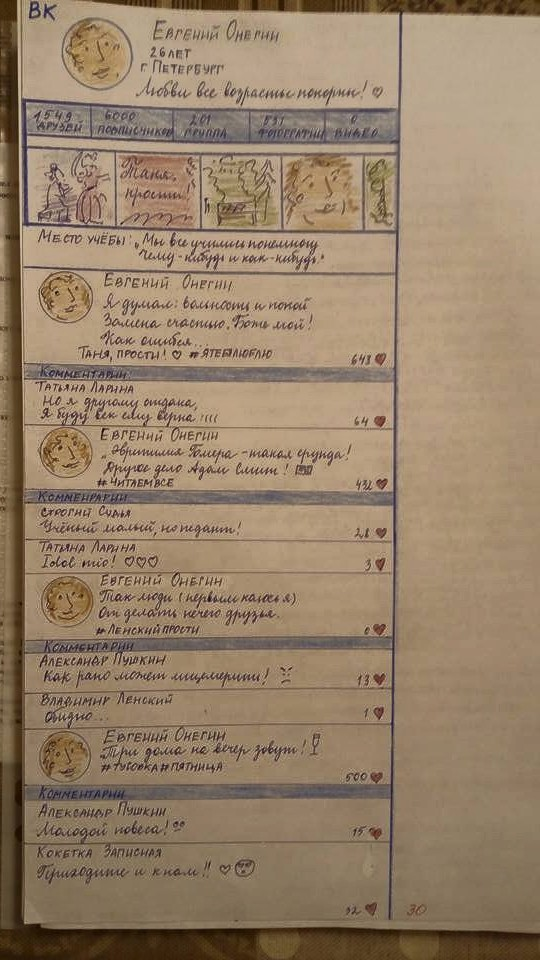 ВК
Евгений Онегин
26 лет
г. Петербург
Любви все возрасты покорны! ♡
1549 6000 201 531 0
друзей подписчиков группа фотографии видео
Таня,
прости!
Место учёбы: „Мы все учились понемногу
Чему-нибудь и как-нибудь."
Евгений Онегин
Я думал: вольность и покой
Замена счастью. Боже мой!
Как ошибся...
Таня, прости! ♡ #ЯТЕБЯЛЮБЛЮ
643 ♥
Комментарии
Татьяна Ларина
Но я другому отдана,
Я буду век ему верна :(((
64 ♥
Евгений Онегин
„Эвритмия Гомера - такая ерунда!
Другое дело Адам Смит!
#ЧИТАЕМВСЕ
432 ♥
Комментарии
Строгий Судья
Учёный малый, но педант!
28 ♥
Татьяна Ларина
Idol mio! ♡♡♡
3 ♥
Евгений Онегин
Так люди (первым каюсь я)
От делать нечего друзья.
#ЛЕНСКИЙПРОСТИ
0 ♥
Комментарии
Александр Пушкин
Как рано может лицемерить!
13 ♥
Владимир Ленский
Обидно...
1 ♥
Евгений Онегин
Три дома на вечер зовут!
#ТУСОВКА#ПЯТНИЦА
500 ♥
Комментарии
Александр Пушкин
Молодой повеса!
15 ♥
Кокетка Записная
Приходите и к нам!! ♡
32 ♥
30